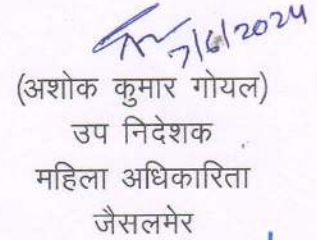 7/6/2024
(अशोक कुमार गोयल)
उप निदेशक
महिला अधिकारिता
जैसलमेर